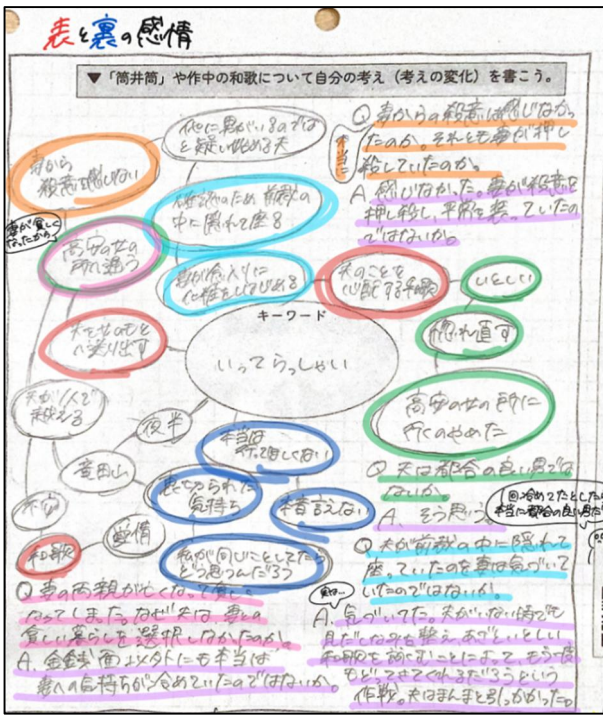 表と裏の感情
▼「筒井筒」や作中の和歌について自分の考え（考えの変化）を書こう。
他に男がいるのでは
と疑い始める夫
妻から
殺意を感じない
確認のため前栽の
中に隠れて座る
妻が貧しく
なったから
高安の女の
所へ通う
妻が念入りに
化粧をしはじめる
夫のことを
心配する和歌
いとしい
惚れ直す
夫を女のもと
へ送り出す
キーワード
いってらっしゃい
高安の女の所に
行くのやめた
夫が1人で
越える
後半
竜田山
不安
愛情
和歌
本当は
行って欲しくない
裏切られた
気持ち
本音言えない
私が同じことしてたら
どう思うんだろう
Q 妻からの殺意は感じなかっ
たのか。それとも妻が押し
殺していたのか。
本当に
A 感じなかった。妻が殺意を
押し殺し、平常を装っていたの
ではないか。
Q 夫は都合の良い男では
ないか。
A. そう思う。
1回冷めてたとしたら
本当に都合の良い男だ
Q 夫が前栽の中に隠れて
座っていたのを妻は気づいて
いたのではないか。
実は…
A. 気づいてた。夫がいない時でも
身だしなみを整え、あでといとしい
和歌を詠むことによって、もう一度
もどってきてくれるだろうという
作戦。夫はまんまと引っかかった。
Q 妻の両親が亡くなって貧しく
なってしまった。なぜ夫は、妻との
貧しい暮らしを選択しなかったのか。
A. 金銭面以外にも本当は
妻への気持ちが冷めていたのではないか。